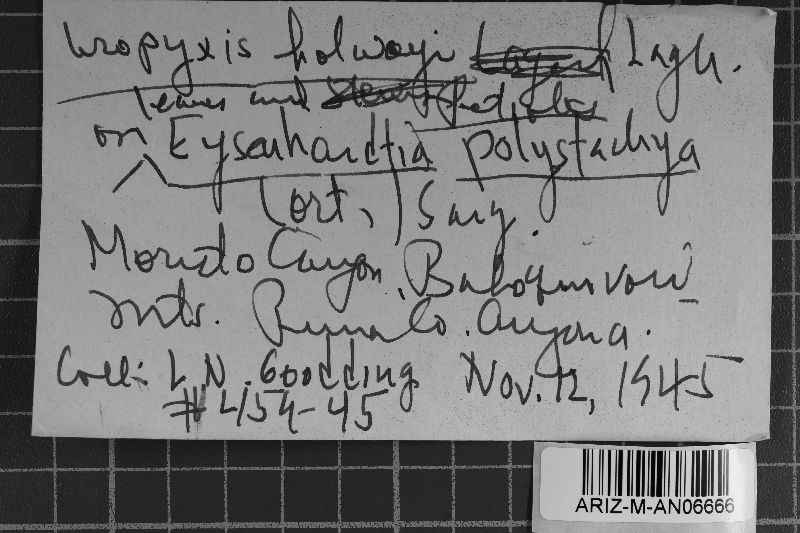 Uropyxis holwayi Lagh.
leaves and
on Eysenhardtia polystachya
(Ort.) Sarg.
Canyon, Baboquivari
Mts. Pima Co. Arizona.
Coll: L.N. Goodding Nov. 12, 1945
#454-45
ARIZ-M-AN06666